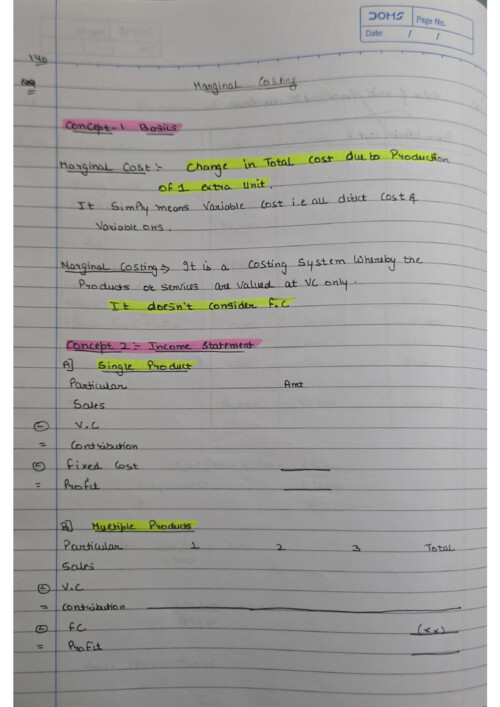 DOMS
Page No.
Date / /
140
Marginal Costing
Concept-1 Basics
Marginal Cost :- Change in Total cost due to Production
of 1 extra Unit.
It Simply means Variable cost i.e all direct cost &
Variable OHS.
Marginal Costing => It is a Costing System Whereby the
Products or Services are Valued at VC only.
It doesn't consider F.C
Concept 2 :- Income Statement
A] Single Product
Particular Amt
Sales
(-) V.C
= Contribution
(-) Fixed Cost
= Profit
B] Multiple Products
Particular 1 2 3 Total
Sales
(-) V.C
= Contribution
(-) FC (xx)
= Profit